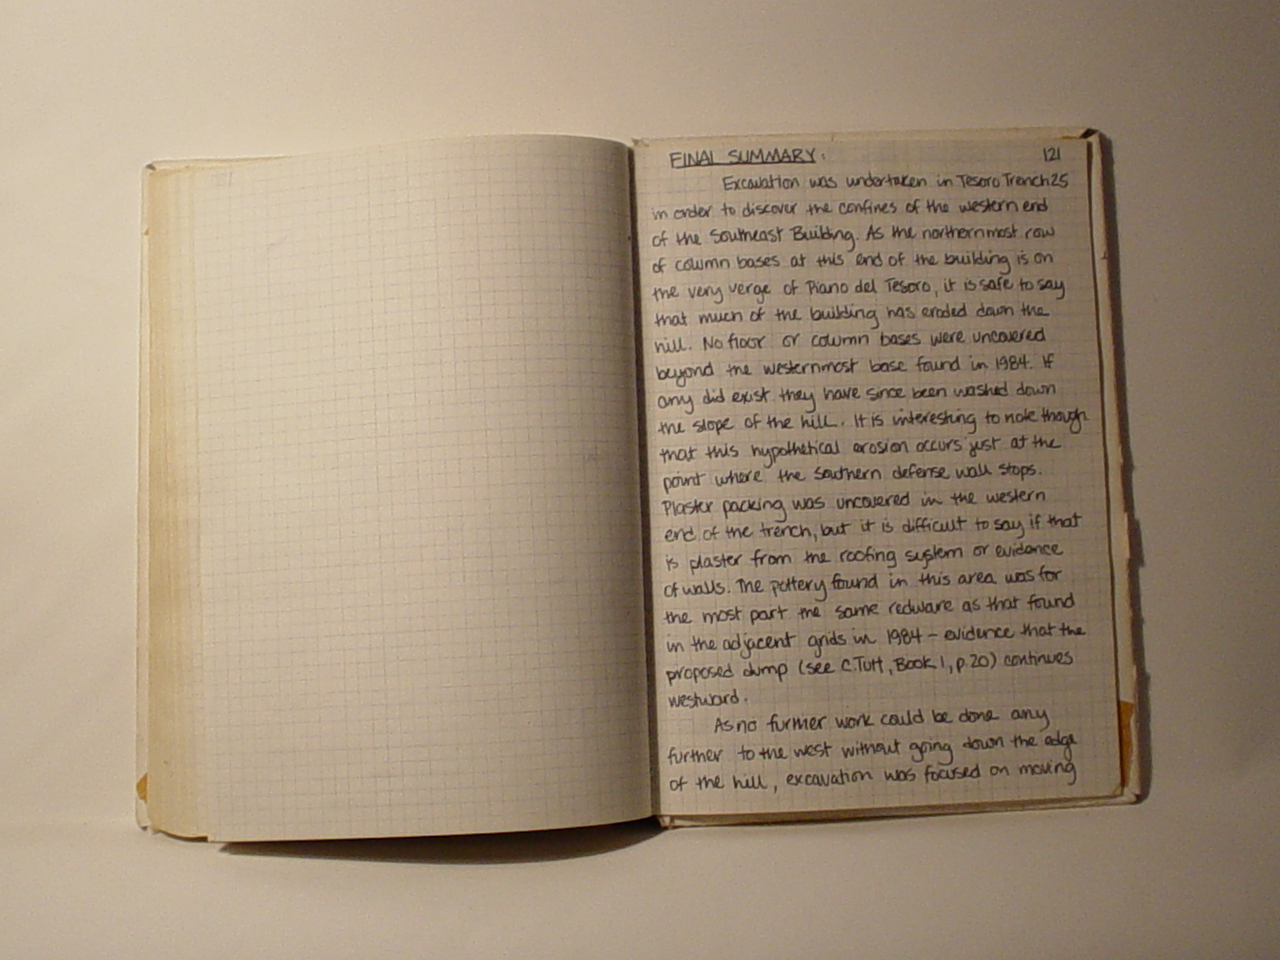 FINAL SUMMARY: 121
Excavation was undertaken in Tesoro Trench 25
in order to discover the confines of the western end
of the Southeast Building. As the northernmost row
of column bases at this end of the building is on
the very verge of Piano del Tesoro, it is safe to say
that much of the building has eroded down the
hill. No floor or column bases were uncovered
beyond the westernmost base found in 1984. If
any did exist they have since been washed down
the slope of the hill. It is interesting to note though
that this hypothetical erosion occurs just at the
point where the southern defense wall stops.
Plaster packing was uncovered in the western
end of the trench, but it is difficult to say if that
is plaster from the roofing system or evidence
of walls. The pottery found in this area was for
the most part the same redware as that found
in the adjacent grids in 1984 - evidence that the
proposed dump (see C. Tuft, Book 1, p. 20) continues
westward.
As no further work could be done any
further to the west without going down the edge
of the hill, excavation was focused on moving